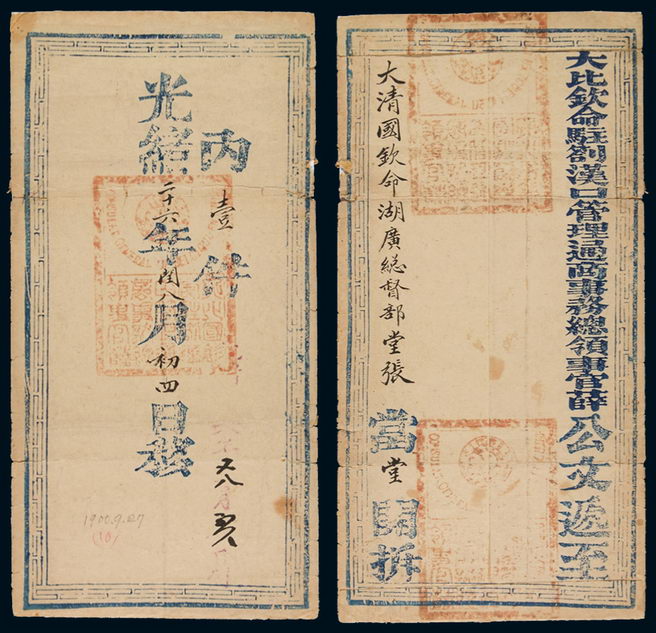 內壹件
光緒二十六年閏八月初四日發
1900.9.27
(10)
大比欽命駐劄漢口管理通商事務總領事官薛公文遞至
大清國欽命湖廣總督部堂張當堂開拆